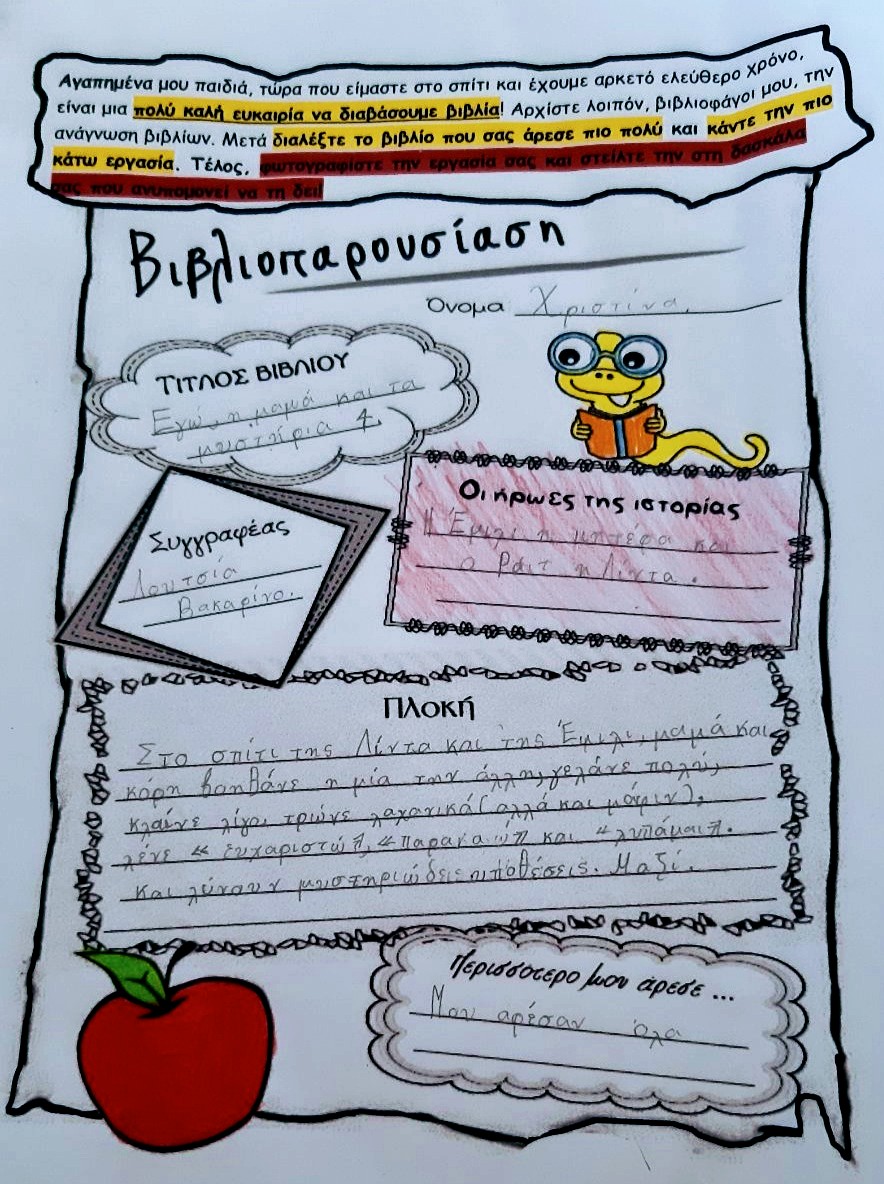 Αγαπημένα μου παιδιά, τώρα που είμαστε στο σπίτι και έχουμε αρκετό ελεύθερο χρόνο,
είναι μια πολύ καλή ευκαιρία να διαβάσουμε βιβλία! Αρχίστε λοιπόν, βιβλιοφάγοι μου, την
ανάγνωση βιβλίων. Μετά διαλέξτε το βιβλίο που σας άρεσε πιο πολύ και κάντε την πιο
κάτω εργασία. Τέλος, φωτογραφίστε την εργασία σας και στείλτε την στη δασκάλα
σας που ανυπομονεί να τη δει!
Βιβλιοπαρουσίαση
Όνομα Χριστίνα.
ΤΙΤΛΟΣ ΒΙΒΛΙΟΥ
Εγώ, η μαμά και τα
μυστήρια 4.
Συγγραφέας
Λουτσία
Βακαρίνο.
Οι ήρωες της ιστορίας
Η Έμιλι η μητέρα και
ο Ράιτ η Λίντα.
Πλοκή
Στο σπίτι της Λίντα και της Έμιλι, μαμά και
κόρη βοηθάνε η μία την άλλη, γελάνε πολύ,
κλαίνε λίγο, τρώνε λαχανικά (αλλά και μάφιν),
λένε « ευχαριστώ», «παρακαλώ» και «λυπάμαι».
και λύνουν μυστηριώδεις υποθέσεις. Μαζί.
Περισσότερο μου άρεσε ...
Μου αρέσαν όλα